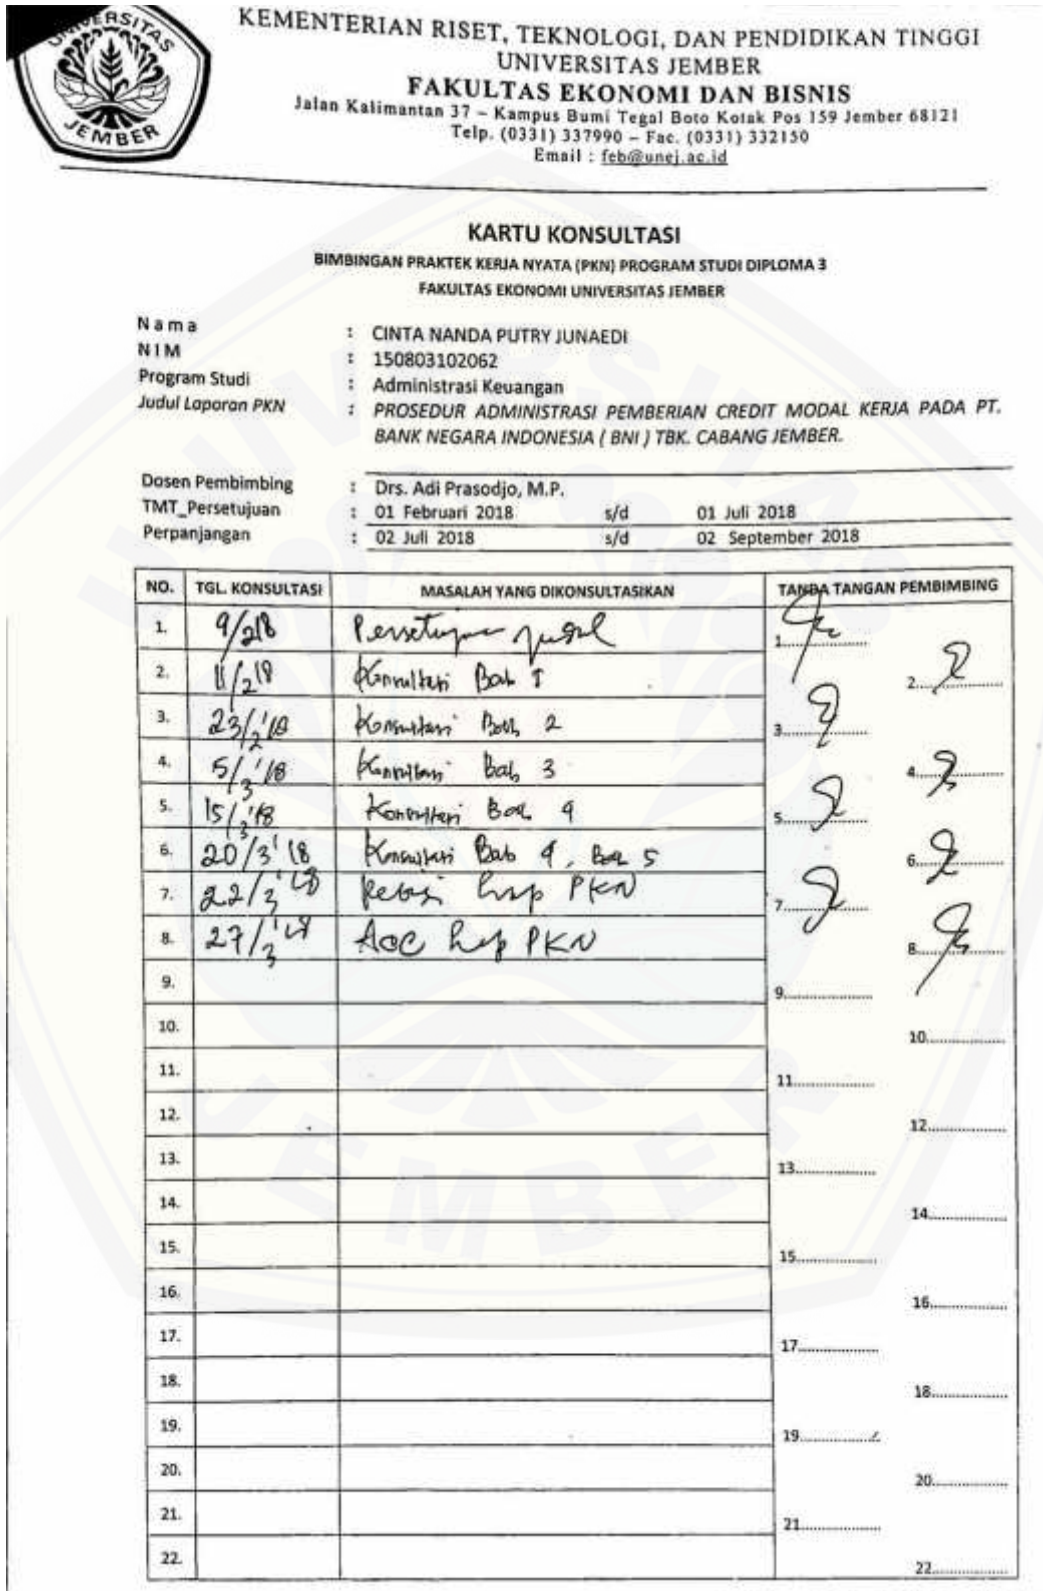 UNIVERSITAS
JEMBER
KEMENTERIAN RISET, TEKNOLOGI, DAN PENDIDIKAN TINGGI
UNIVERSITAS JEMBER
FAKULTAS EKONOMI DAN BISNIS
Jalan Kalimantan 37 – Kampus Bumi Tegal Boto Kotak Pos 159 Jember 68121
Telp. (0331) 337990 – Fac. (0331) 332150
Email : feb@unej.ac.id
KARTU KONSULTASI
BIMBINGAN PRAKTEK KERJA NYATA (PKN) PROGRAM STUDI DIPLOMA 3
FAKULTAS EKONOMI UNIVERSITAS JEMBER
Nama : CINTA NANDA PUTRY JUNAEDI
NIM : 150803102062
Program Studi : Administrasi Keuangan
Judul Laporan PKN : PROSEDUR ADMINISTRASI PEMBERIAN CREDIT MODAL KERJA PADA PT.
BANK NEGARA INDONESIA ( BNI ) TBK. CABANG JEMBER.
Dosen Pembimbing : Drs. Adi Prasodjo, M.P.
TMT_Persetujuan : 01 Februari 2018 s/d 01 Juli 2018
Perpanjangan : 02 Juli 2018 s/d 02 September 2018
NO. TGL. KONSULTASI MASALAH YANG DIKONSULTASIKAN TANDA TANGAN PEMBIMBING
1. 9/218 Persetujuan judul 1..................
2. 11/2 18 Konsultasi Bab 1 2..................
3. 23/2 '18 Konsultasi Bab 2 3..................
4. 5/3 '18 Konsultasi Bab 3 4..................
5. 15/3 '18 Konsultasi Bab 4 5..................
6. 20/3 '18 Konsultasi Bab 4, Bab 5 6..................
7. 22/3 '18 PKN 7..................
8. 27/3 '18 ACC PKN 8..................
9. 9..................
10. 10..................
11. 11..................
12. 12..................
13. 13..................
14. 14..................
15. 15..................
16. 16..................
17. 17..................
18. 18..................
19. 19..................
20. 20..................
21. 21..................
22. 22..................